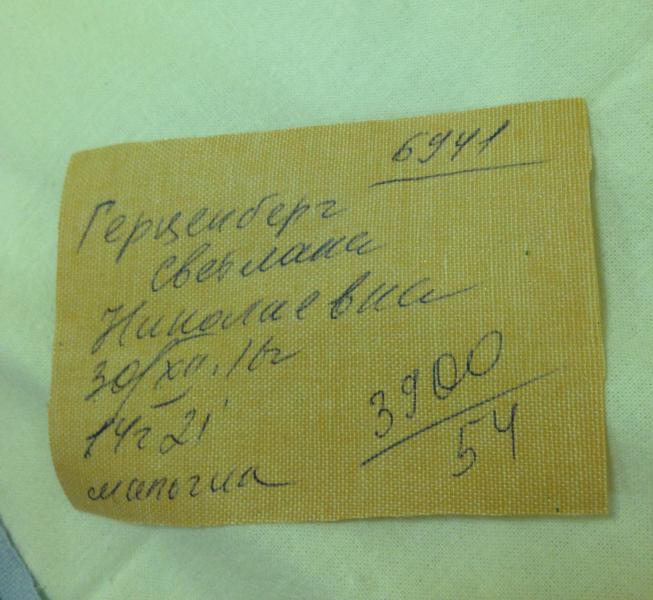 6941
Герценберг
Светлана
Николаевна
30/XII.16г
14г 21'
мальчик
3900
54